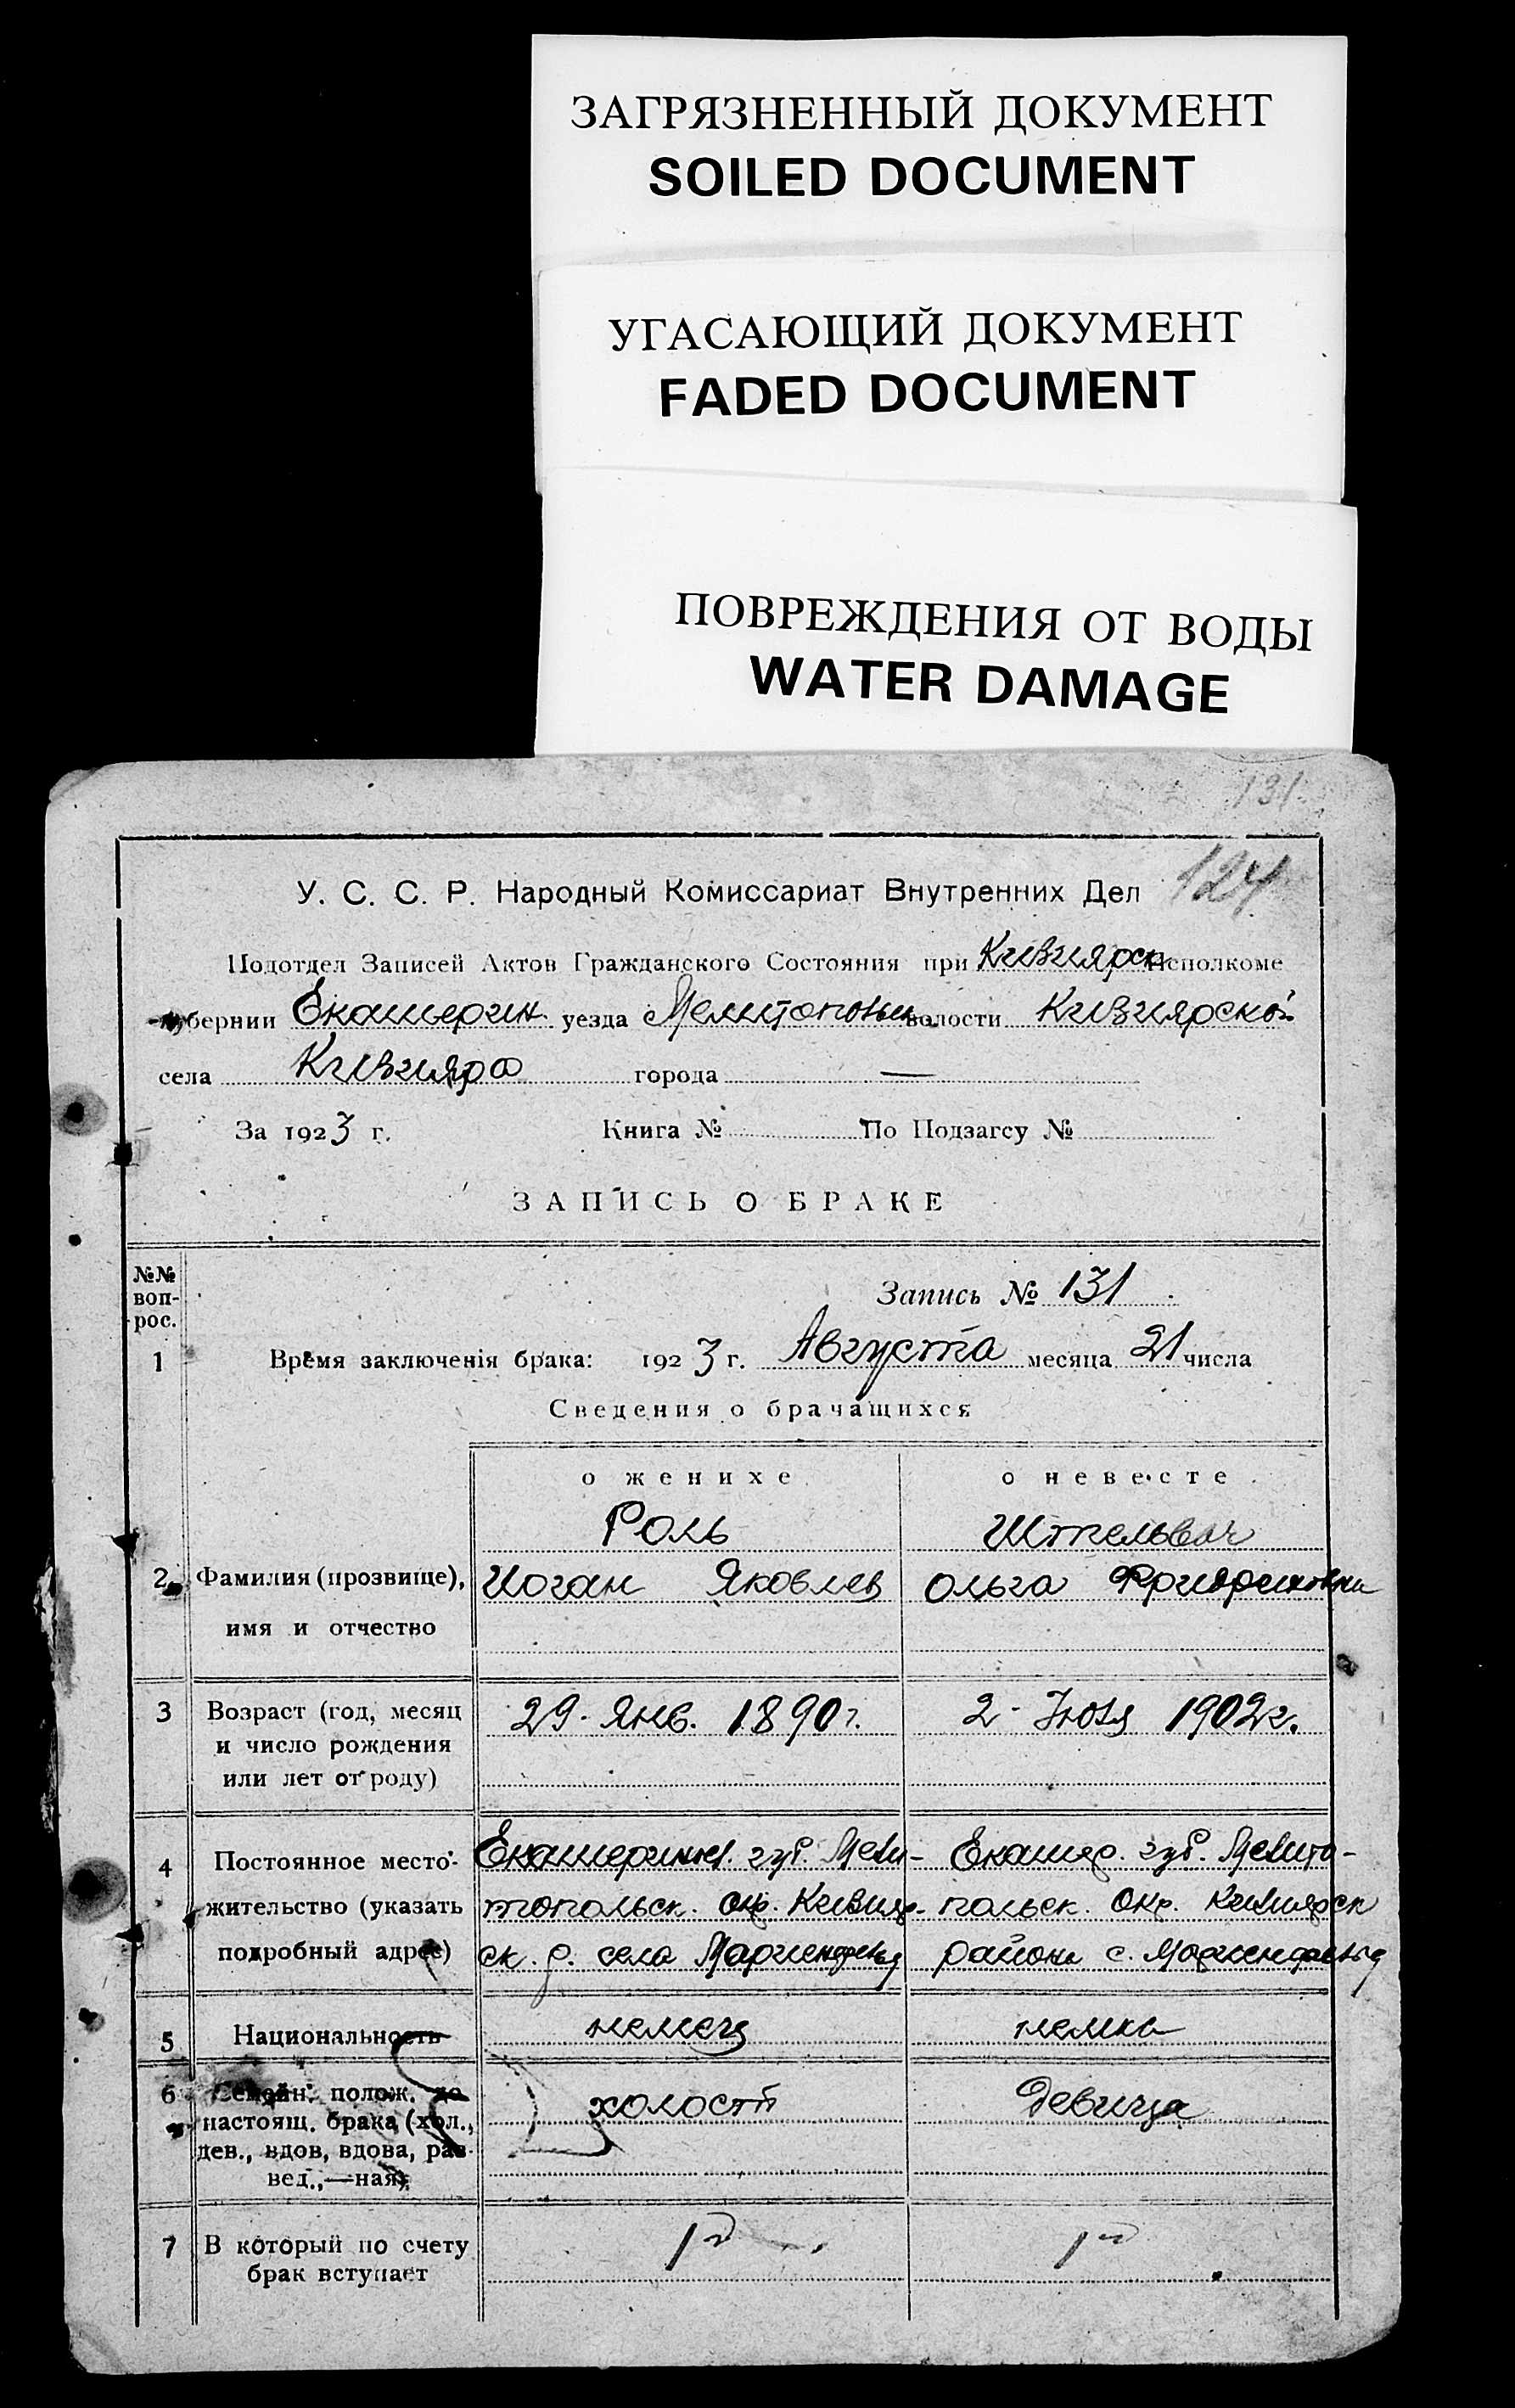 ЗАГРЯЗНЕННЫЙ ДОКУМЕНТ
SOILED DOCUMENT
УГАСАЮЩИЙ ДОКУМЕНТ
FADED DOCUMENT
ПОВРЕЖДЕНИЯ ОТ ВОДЫ
WATER DAMAGE
131.
124
У. С. С. Р. Народный Комиссариат Внутренних Дел
Подотдел Записей Актов Гражданского Состояния при Кизиярск Исполкоме
губернии Екатерин. уезда волости Кизиярской
села Кизияра города —
За 1923 г. Книга № По Подзагсу №
ЗАПИСЬ О БРАКЕ
№№ воп-рос.
Запись № 131
1 Время заключенія брака: 1923 г. Августа месяца 21 числа
Сведения о брачащихся
о женихе о невесте
Роль
2 Фамилия (прозвище), Иоган Яковлев Ольга
имя и отчество
3 Возраст (год, месяц 29. Янв. 1890 г. 2- Июля 1902 г.
и число рождения
или лет от роду)
4 Постоянное место- губ. Мели- Екатер. губ. Мелито-
жительство (указать топольск. окр. Кизияр- польск. окр. Кизиярск
подробный адрес) ск. р. села Мариенфельд района с. Мариенфельд
5 Национальность немец немка
6 Семейн. полож. до
настоящ. брака (хол., холост девица
дев., вдов, вдова, раз-
вед.,—ная)
7 В который по счету 1й 1й
брак вступает